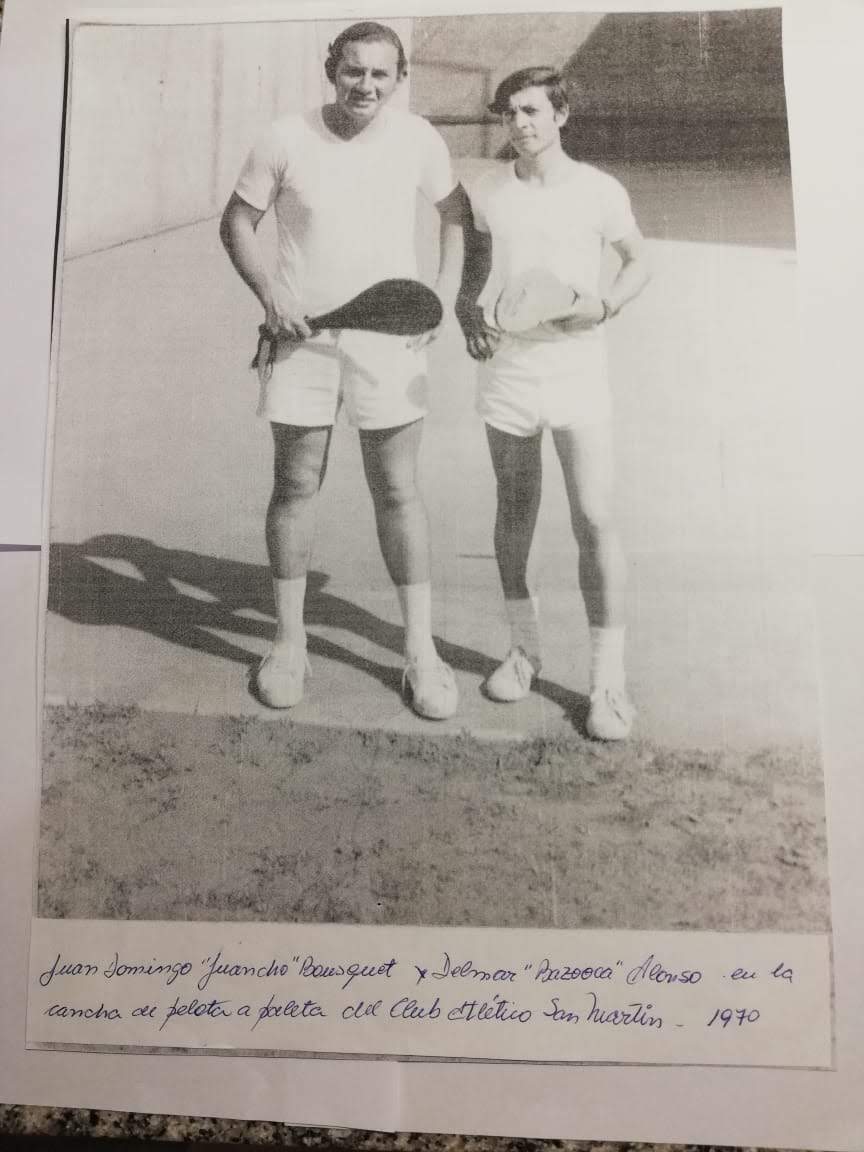 Juan Domingo "Juancho" Bousquet y Delmar "Bazooca" Alonso en la
cancha de pelota a paleta del Club Atlético San Martín - 1970